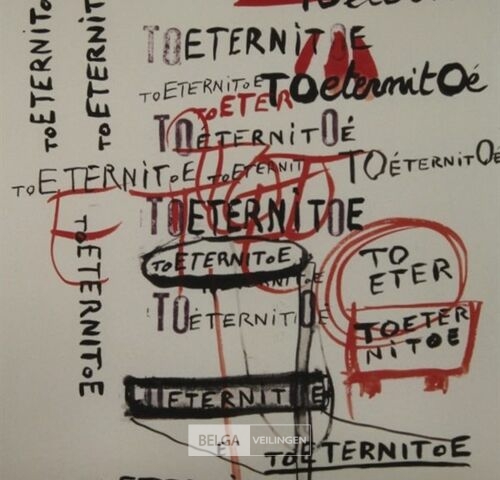 TOETERNITOE
TOETERNITOE
TOETERNITOE
TOETERNITOE
TOeternitOé
TOETER
TOéTERNITOé
TOETERNITOE
TOETERNIT
TOéTERNITOé
TOETERNITOE
TOETERNITOE
TOETERNITOE
TO
ETER
TOéTERNITOé
TOETER
NITOE
TOETERNITOE
ETERNITOE
BELGA VEILINGEN
TOETERNITOE